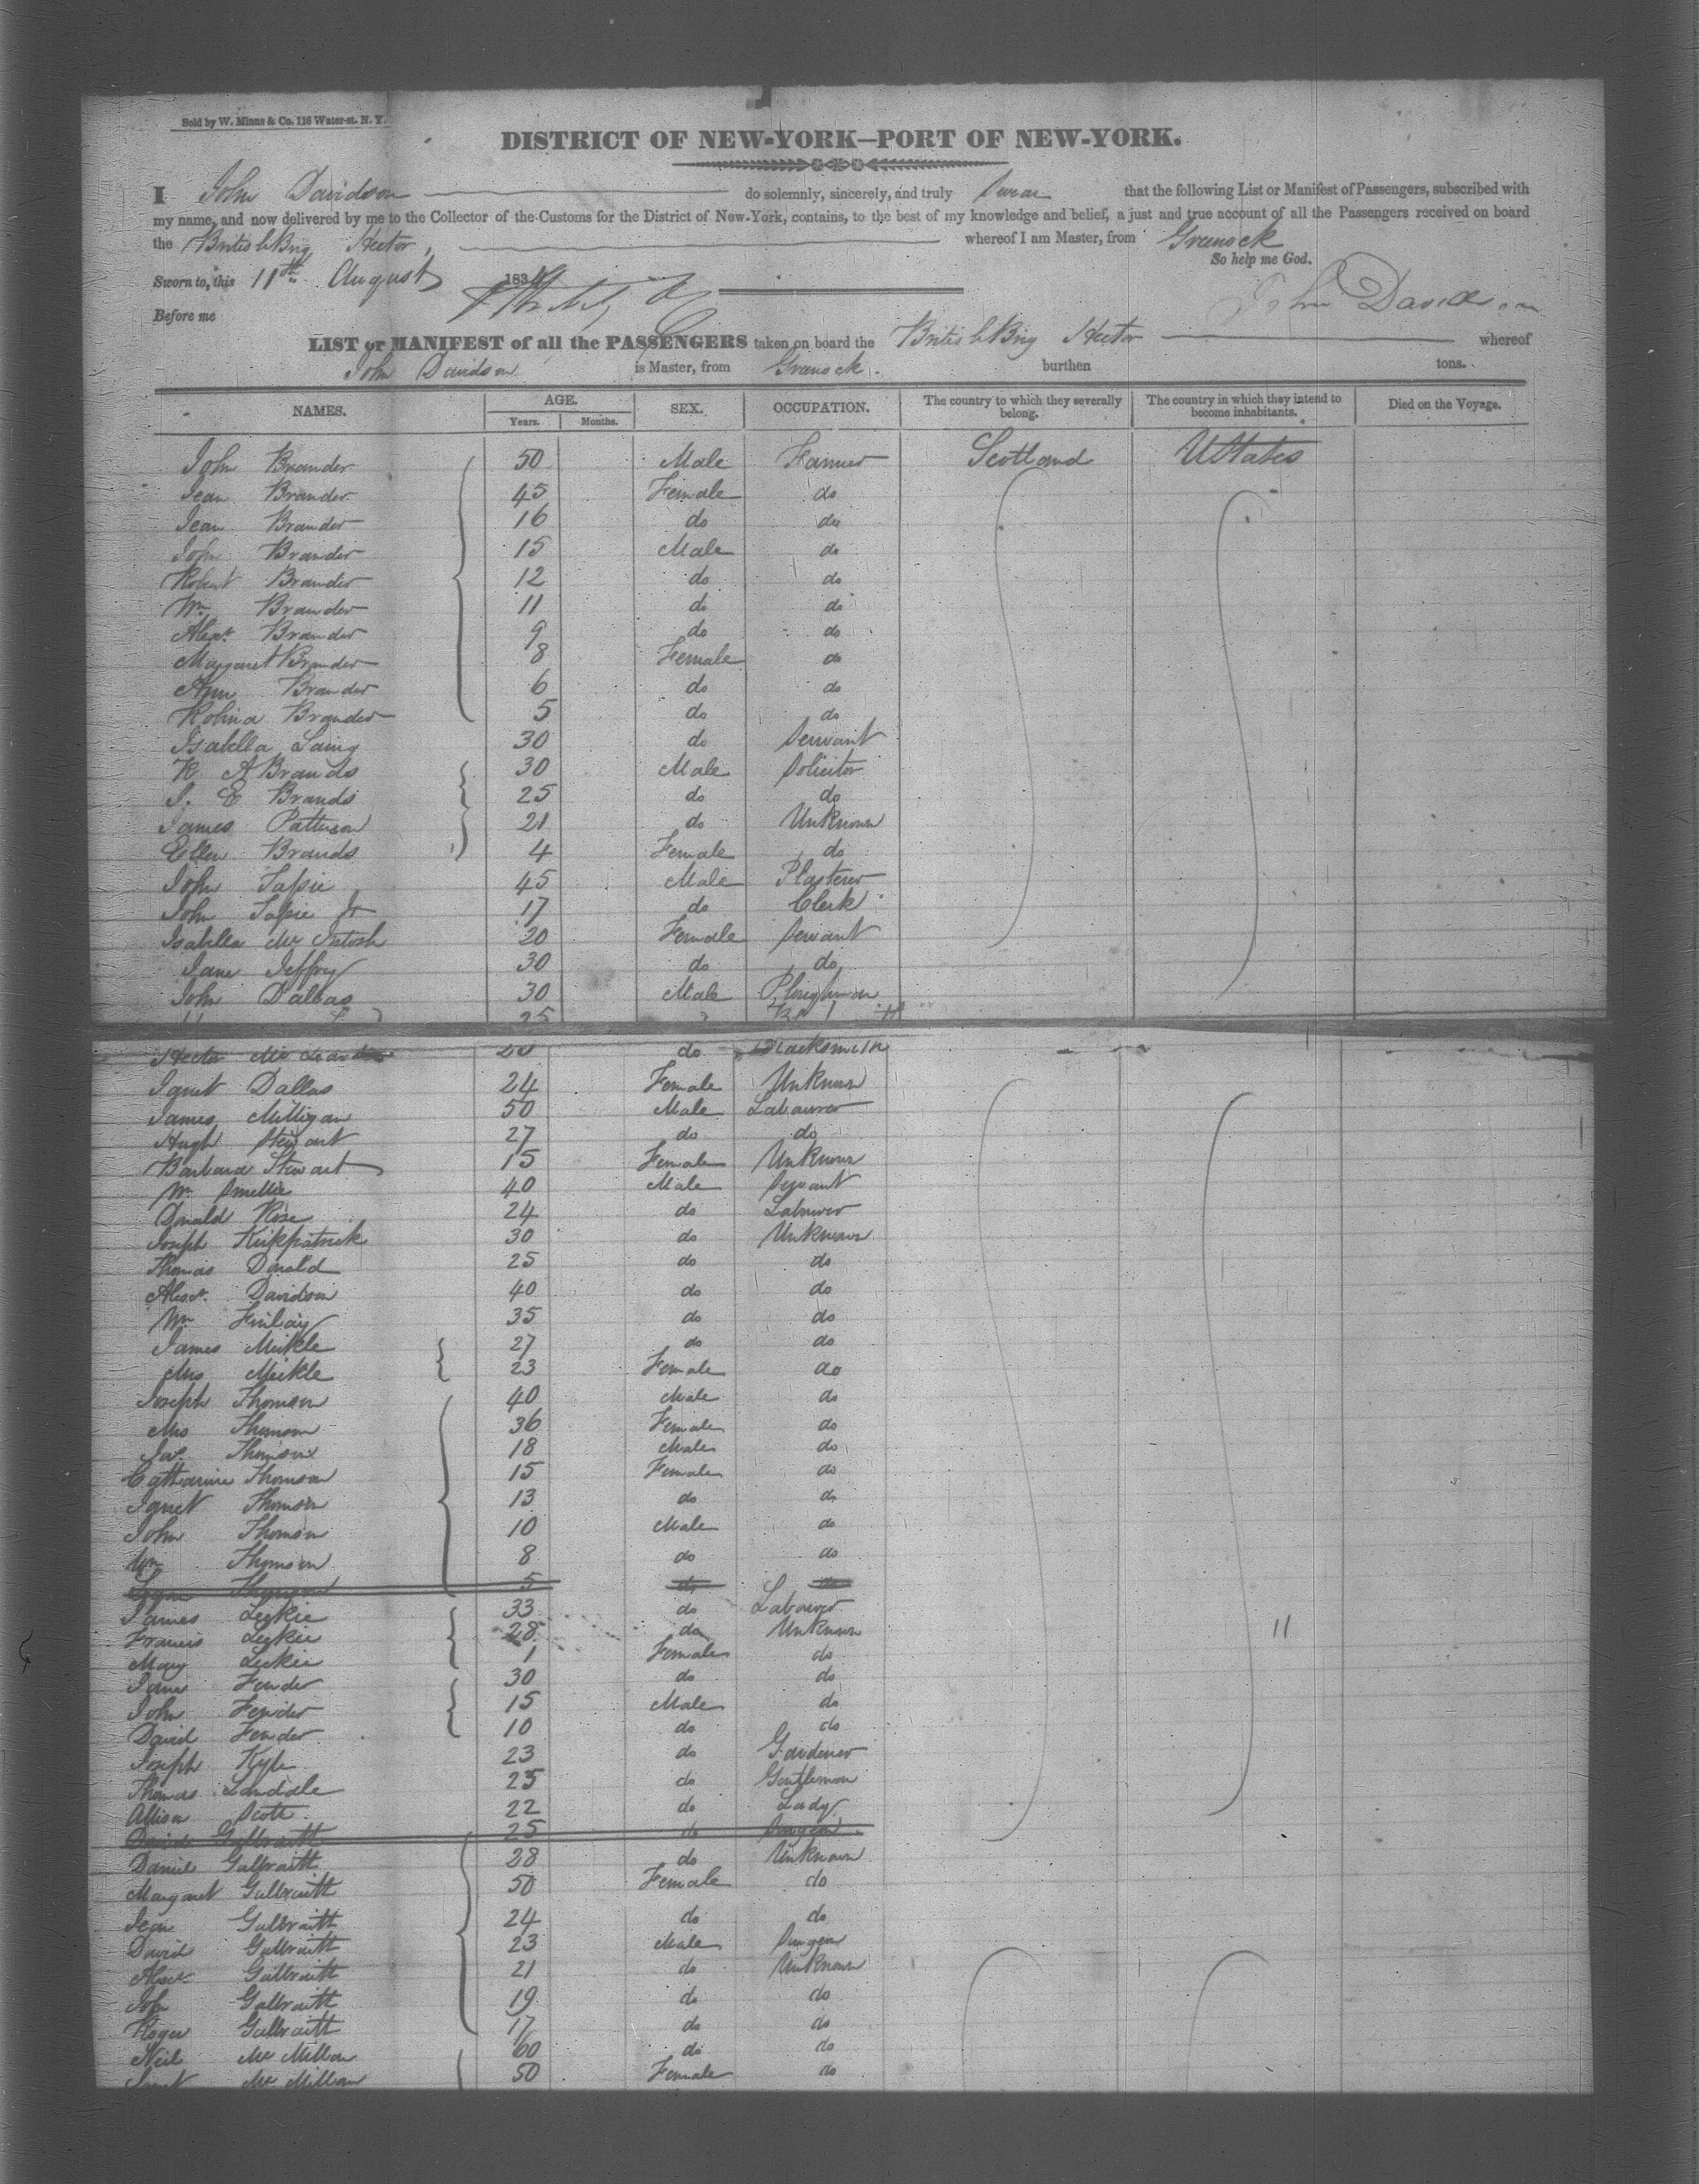 Sold by W. Minns & Co. 116 Water-st. N. Y.
DISTRICT OF NEW-YORK—PORT OF NEW-YORK.
I John Davidson do solemnly, sincerely, and truly swear that the following List or Manifest of Passengers, subscribed with
my name, and now delivered by me to the Collector of the Customs for the District of New-York, contains, to the best of my knowledge and belief, a just and true account of all the Passengers received on board
the British Brig Hector, whereof I am Master, from Greenock
So help me God.
Sworn to, this 11th August 1834
John Davidson
Before me
LIST or MANIFEST of all the PASSENGERS taken on board the British Brig Hector whereof
John Davidson is Master, from Greenock. burthen tons.
NAMES. AGE. Years. Months. SEX. OCCUPATION. The country to which they severally belong. The country in which they intend to become inhabitants. Died on the Voyage.
John Brander 50 Male Farmer Scotland UStates
Jean Brander 45 Female do
Jean Brander 16 do do
John Brander 15 Male do
Robert Brander 12 do do
Wm Brander 11 do do
Alexr. Brander 9 do do
Margaret Brander 8 Female do
Ann Brander 6 do do
Robina Brander 5 do do
Isabella Laing 30 do Servant
R A Brands 30 Male Solicitor
J. E Brands 25 do do
James Patterson 21 do Unknown
Ellen Brands 4 Female do
John 45 Male Plasterer
John Jr 17 do Clerk
Isabella Mc Intosh 20 Female Servant
Jane Jeffrey 30 do do
John Dallas 30 Male Ploughman
Hector Mc do Blacksmith
Janet Dallas 24 Female Unknown
James Milligan 50 Male Labourer
Hugh Stewart 27 do do
Barbara Stewart 15 Female Unknown
Wm Smellie 40 Male Servant
Donald Rose 24 do Labourer
Joseph Kirkpatrick 30 do Unknown
Thomas Donald 25 do do
Alexr. Davidson 40 do do
Wm Finlay 35 do do
James Meikle 27 do do
Mrs Meikle 23 Female do
Joseph Thomson 40 Male do
Mrs Thomson 36 Female do
Jas. Thomson 18 Male do
Catharine Thomson 15 Female do
Janet Thomson 13 do do
John Thomson 10 Male do
Wm Thomson 8 do do
Thomson 5 do do
James Leckie 33 do Labourer
Francis Leckie 28 do Unknown 11
Mary Leckie 1 Female do
Jane Fender 30 do do
John Fender 15 Male do
David Fender 10 do do
Joseph Kyle 23 do Gardener
Thomas Landale 25 do Gentleman
Allison Scott 22 do Lady
David Galbraith 25 do Surgeon
Daniel Galbraith 28 do Unknown
Margaret Galbraith 50 Female do
Jean Galbraith 24 do do
David Galbraith 23 Male Surgeon
Alexr. Galbraith 21 do Unknown
John Galbraith 19 do do
Roger Galbraith 17 do do
Neil Mc Millan 60 do do
Janet Mc Millan 50 Female do